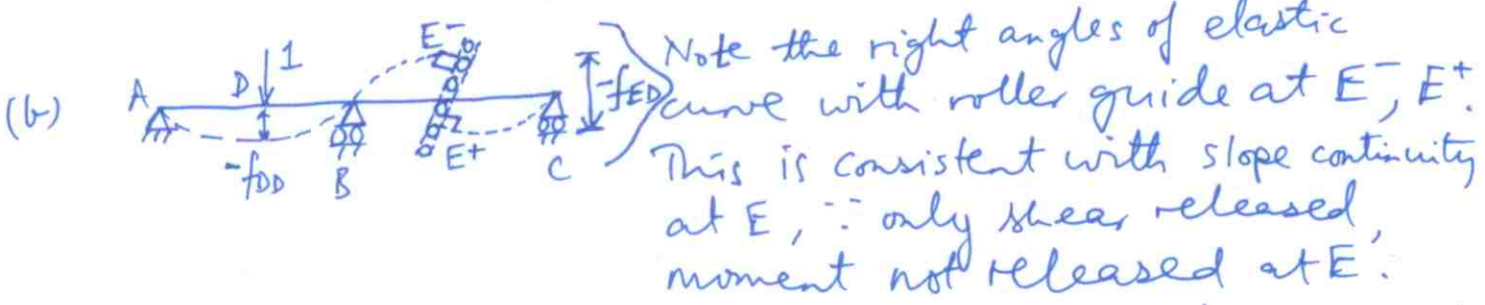 (b) A D 1 E⁻ B E⁺ C -f_DD -f_ED
Note the right angles of elastic
curve with roller guide at E⁻, E⁺.
This is consistent with slope continuity
at E, ∵ only shear released,
moment not released at E.